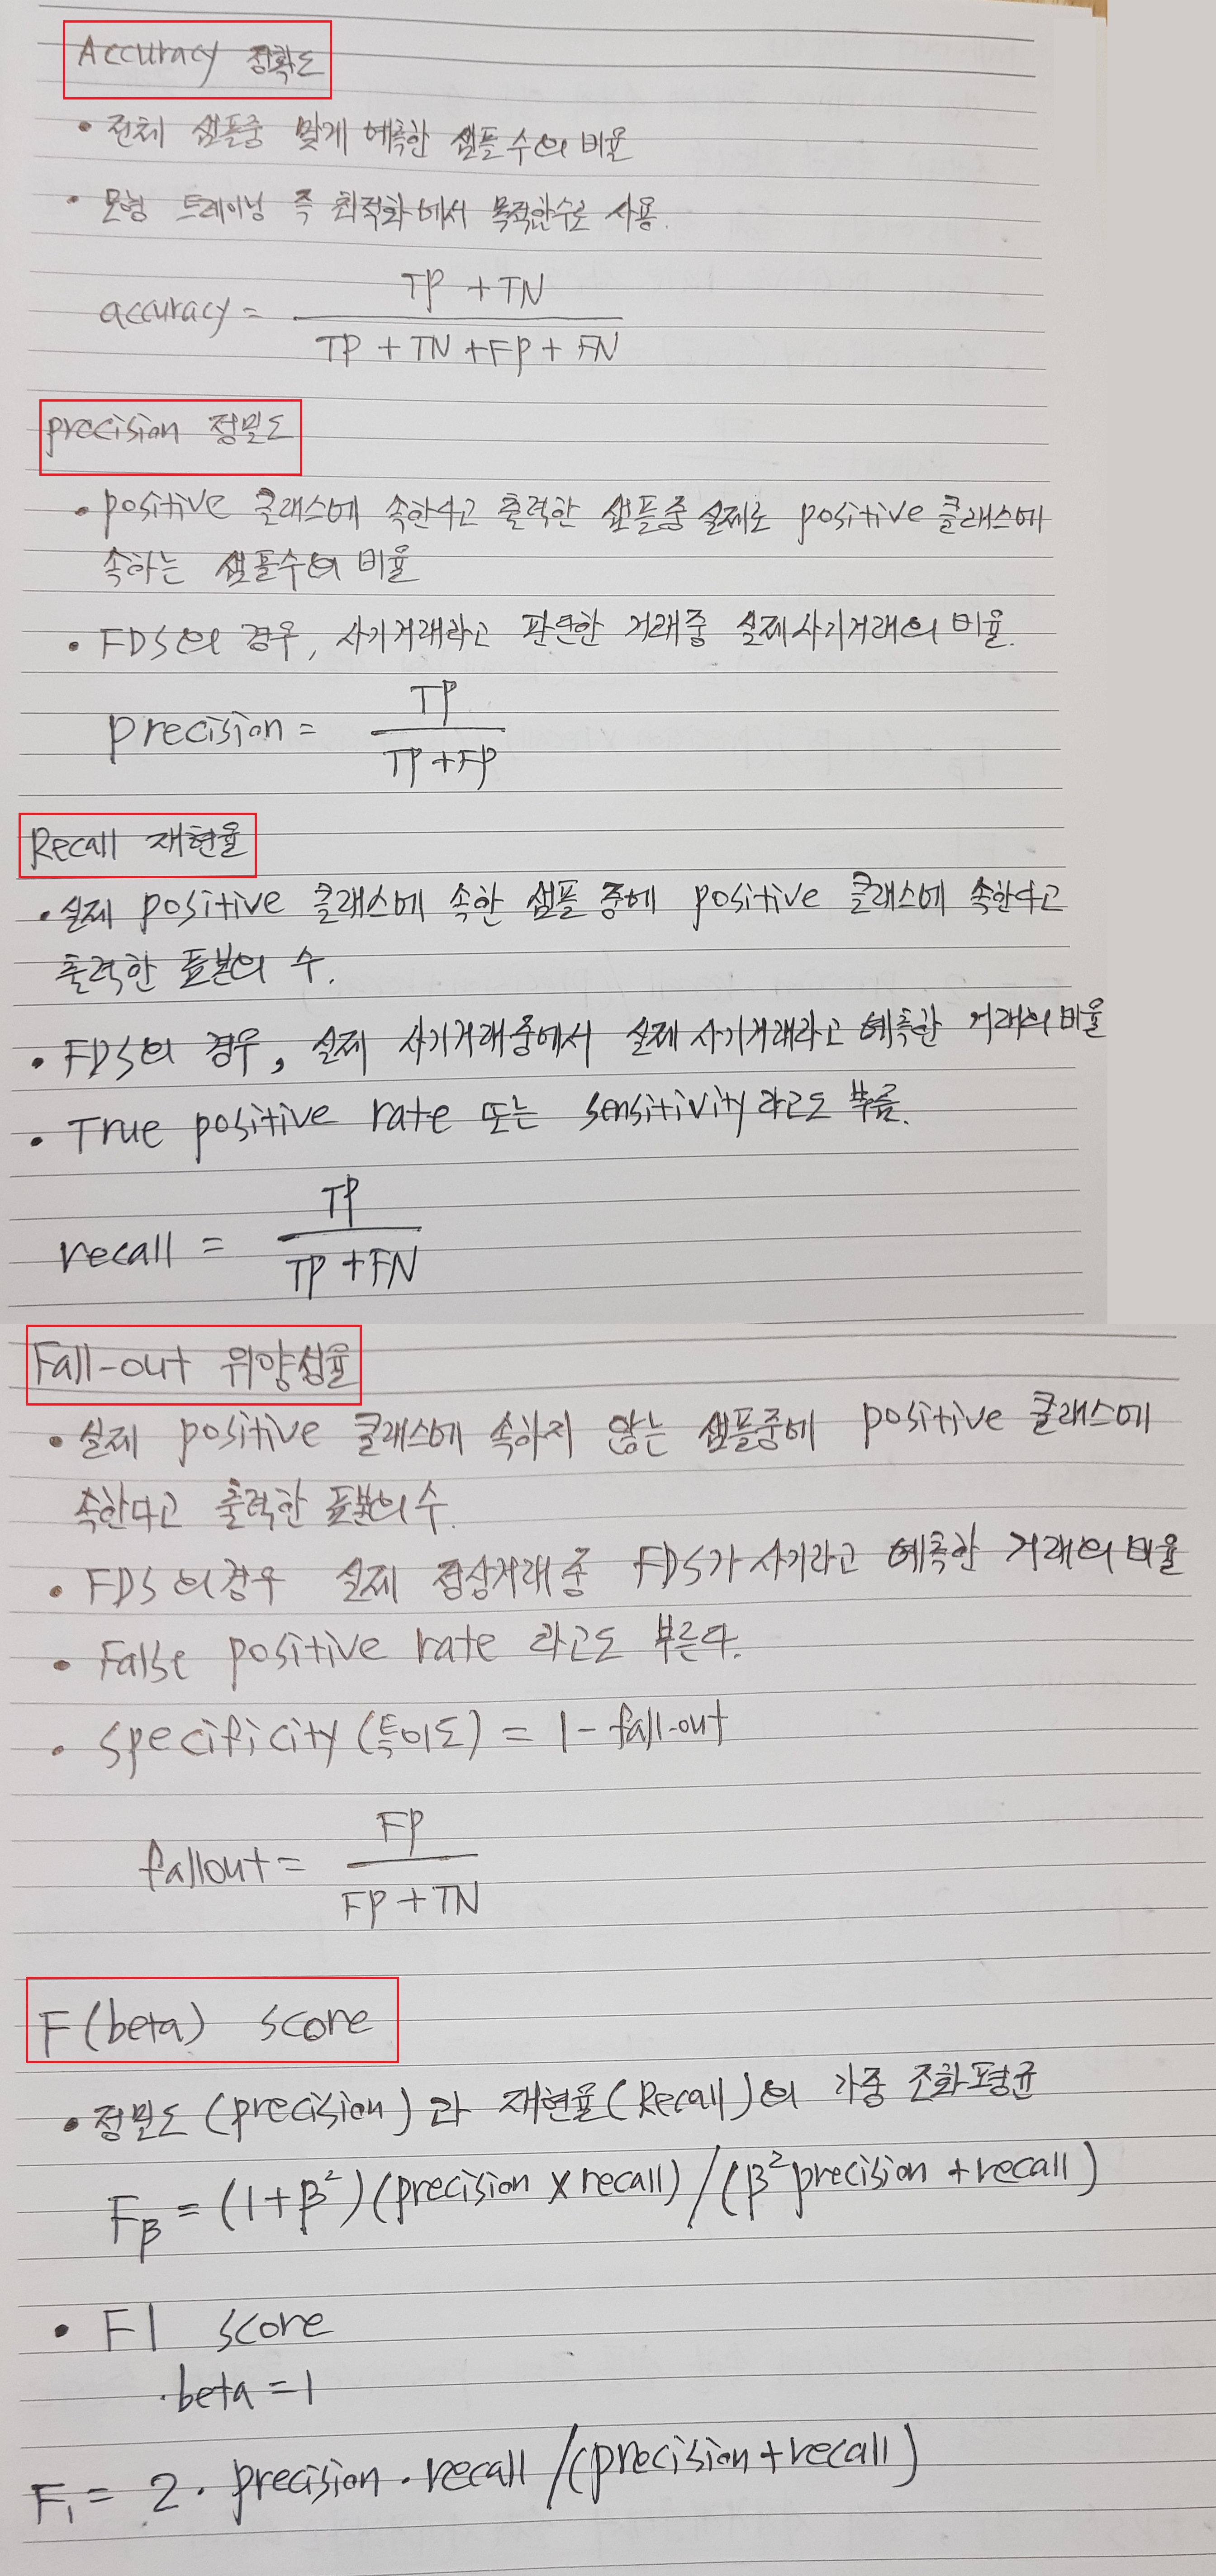 Accuracy 정확도
• 전체 샘플중 맞게 예측한 샘플 수의 비율
• 모형 트레이닝 즉 최적화에서 목적함수로 사용.
accuracy = TP + TN
TP + TN + FP + FN
precision 정밀도
• positive 클래스에 속한다고 출력한 샘플중 실제로 positive 클래스에
속하는 샘플수의 비율
• FDS의 경우, 사기거래라고 판단한 거래중 실제사기거래의 비율.
precision = TP
TP + FP
Recall 재현율
• 실제 positive 클래스에 속한 샘플 중에 positive 클래스에 속한다고
출력한 표본의 수.
• FDS의 경우, 실제 사기거래중에서 실제 사기거래라고 예측한 거래의 비율
• True positive rate 또는 sensitivity라고도 부름.
recall = TP
TP + FN
Fall-out 위양성율
• 실제 positive 클래스에 속하지 않는 샘플중에 positive 클래스에
속한다고 출력한 표본의 수.
• FDS의 경우 실제 정상거래 중 FDS가 사기라고 예측한 거래의 비율
• False positive rate 라고도 부른다.
• specificity (특이도) = 1 - fall-out
fallout = FP
FP + TN
F(beta) score
• 정밀도 (precision) 과 재현율 (Recall)의 가중 조화평균
Fβ = (1+β²)(precision × recall) / (β² precision + recall)
• F1 score
. beta = 1
F₁ = 2 · precision · recall / (precision + recall)